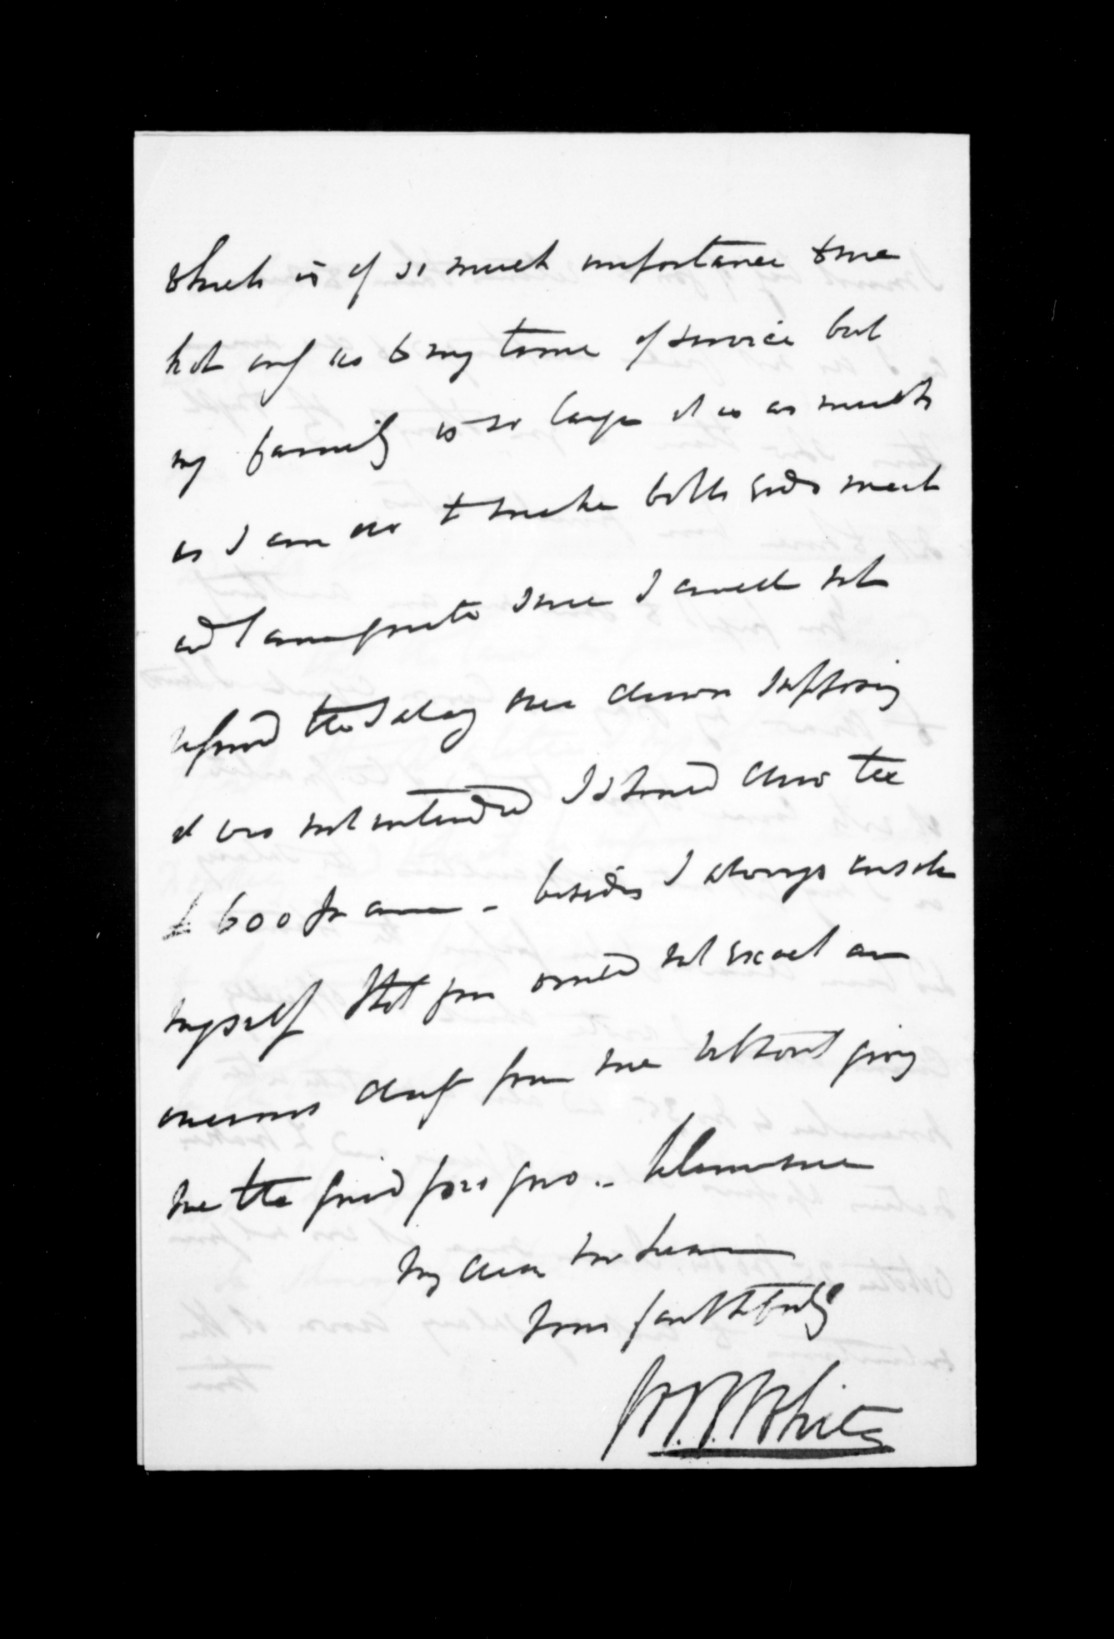 which is of so much importance to me
not only as to my time of service but
my family is so large it is as much
as I can do to make both ends meet
and I am quite sure I could not
refund the Salary once drawn supposing
it was not intended I should draw the
£600 per ann - besides I always
myself that you would not exact an
onerous duty from me without giving
me the quid pro quo - Believe me
My dear Mr McLean
Yours faithfully
W.B. White